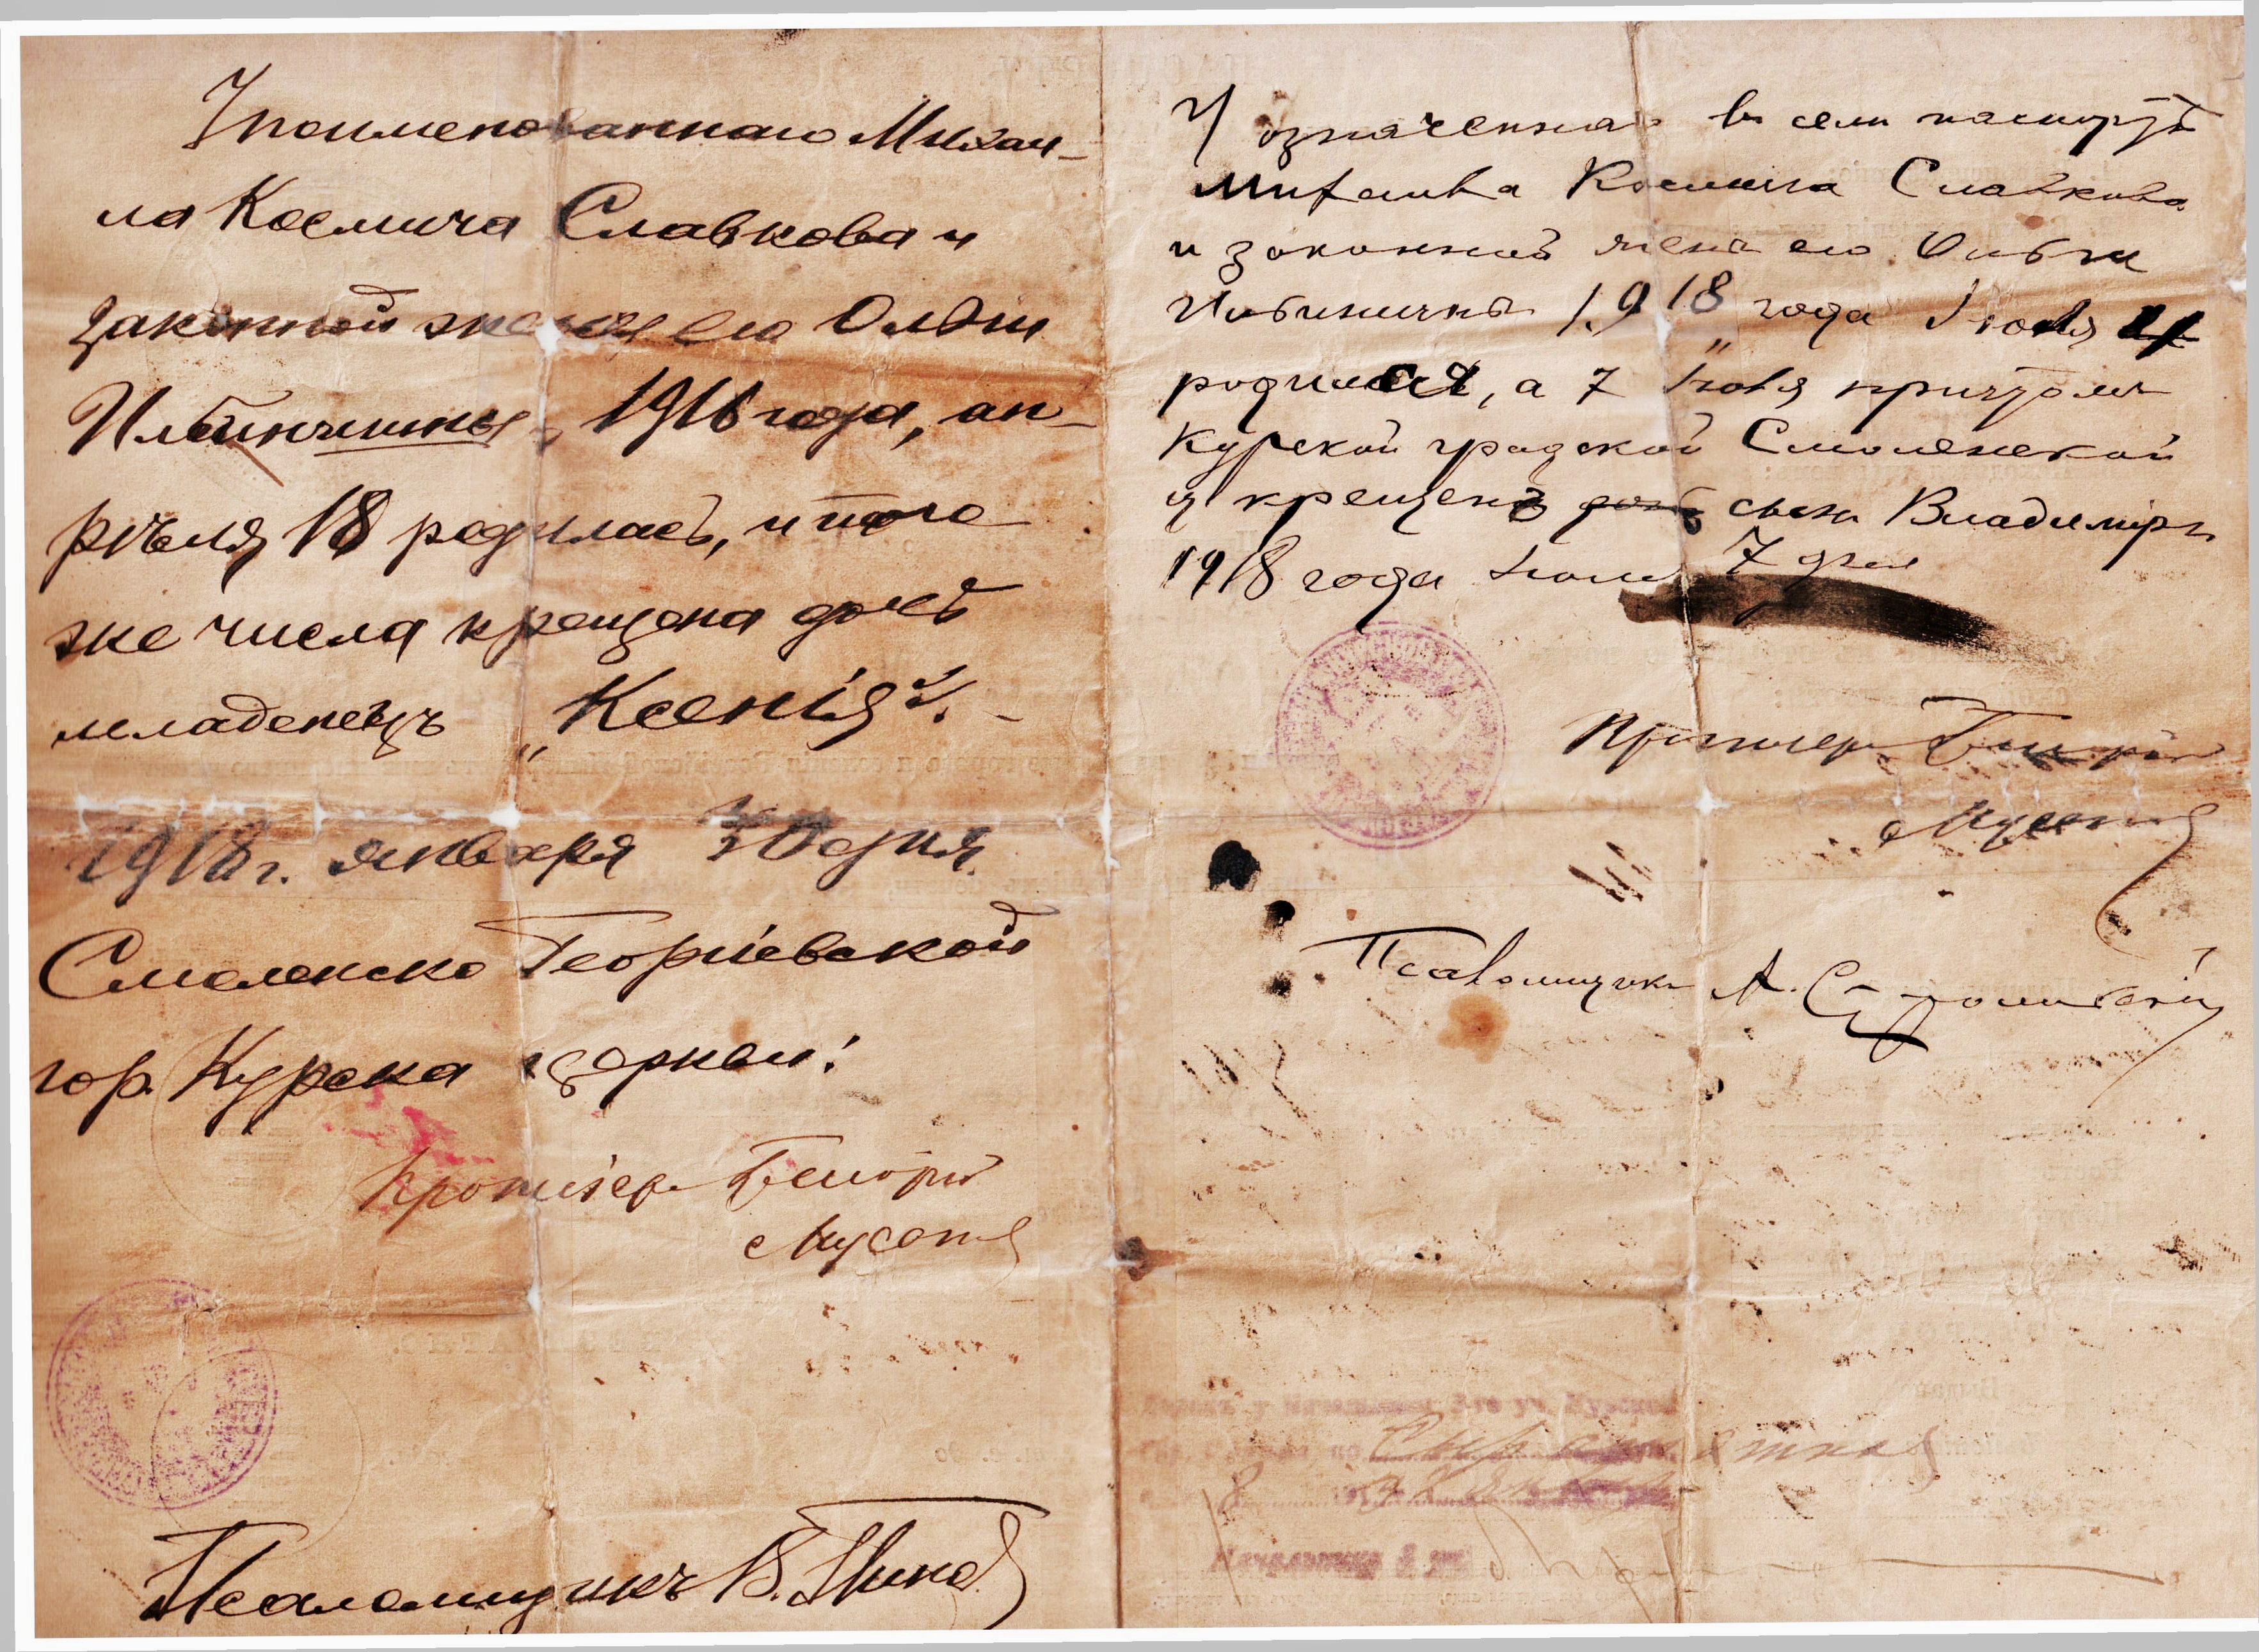 У поименованнаго Михаи-
ла Космича Славкова и
законной жены его Ольги
Ильиничны, 1916 года, ап-
рѣля 18 родилась, и того
же числа крещена дочь
младенецъ „Ксенія“.
1918 г. января 30 дня.
Смоленско Георгіевской
гор. Курска церкви:
Протоіер. Георгій
Псаломщикъ В.
У означеннаго въ семъ паспортѣ
Михаила Космича Славкова
и законной жены его Ольги
Ильиничны 1918 года Іюля 4
родился, а 7 Іюля причтомъ
Курской градской Смоленской
ц. крещенъ сынъ Владиміръ
1918 года Іюля 7 дня
Протоіер. Георгій
Псаломщикъ А.
Начальникъ